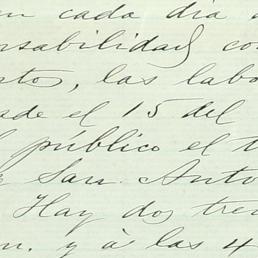 en cada dia
nsabilidad con
sto, las labo
ade el 15 del
público el t
Sara Anto
Hay dos tre
m. y à las 4